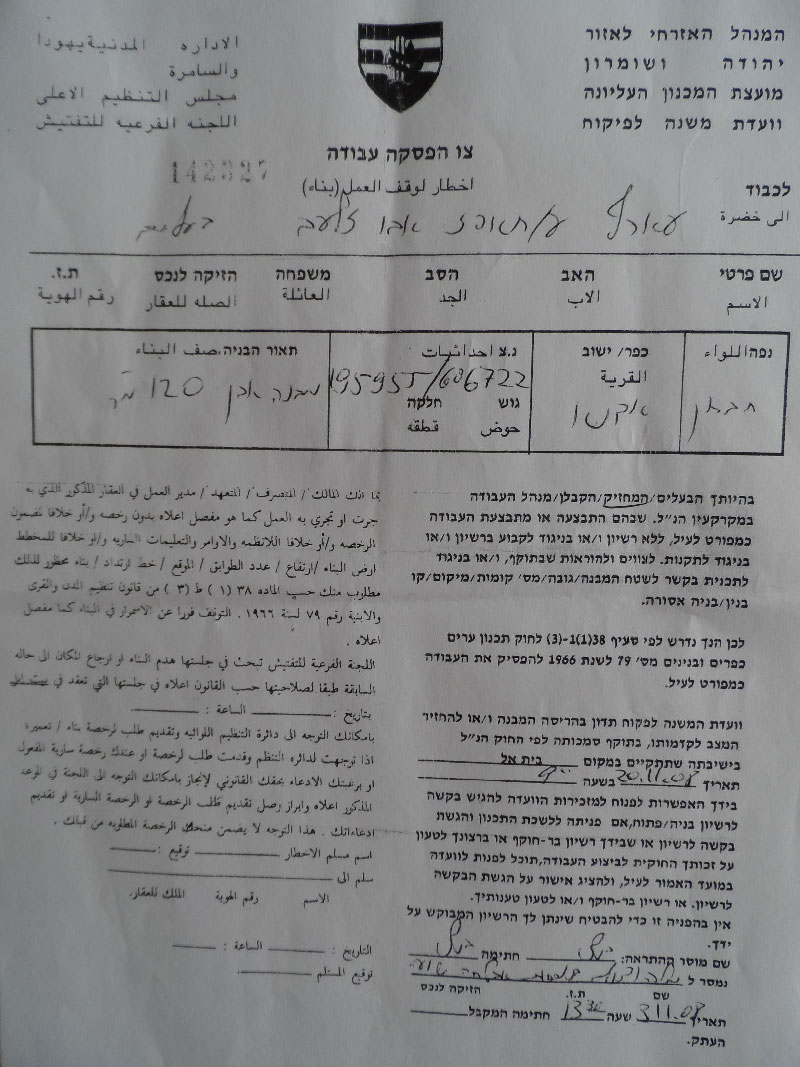 המנהל האזרחי לאזור
יהודה ושומרון
מועצת המכנון העליונה
וועדת משנה לפיקוח
الاداره المدنية يهودا
والسامرة
مجلس التنظيم الاعلى
اللجنه الفرعيه للتفتيش
צו הפסקה עבודה
142327
اخطار لوقف العمل (بناء)
לכבוד
الى حضرة
שם פרטי האב הסב משפחה הזיקה לנכס ת.ז.
الاسم الاب الجد العائلة الصله للعقار رقم الهوية
נפה اللواء כפר/ ישוב נ.צ احداثيات תאור הבניה، صف البناء
القرية 195955/606722 מבנה אבן 120 מ"ר
גוש חלקה
حوض قطقه
בהיותך הבעלים/המחזיק/הקבלן/מנהל העבודה
במקרקעין הנ"ל. שבהם התבצעה או מתבצעת העבודה
כמפורט לעיל, ללא רשיון ו/או בניגוד לקבוע ברשיון ו/או
בניגוד לתקנות. לצווים ולהוראות שבתוקף, ו/או בניגוד
לתכנית בקשר לשטח המבנה/גובה/מס' קומות/מיקום/קו
בנין/בניה אסורה.
לכן הנך נדרש לפי סעיף 38(1)-1(3) לחוק תכנון ערים
כפרים ובנינים מס' 79 לשנת 1966 להפסיק את העבודה
כמפורט לעיל.
וועדת המשנה לפקוח תדון בהריסה המבנה ו/או להחזיר
המצב לקדמותו, בתוקף סמכותה לפי החוק הנ"ל
בישיבתה שתתקיים במקום בית אל
תאריך 20.11.08 בשעה
בידך האפשרות לפנות למזכירות הוועדה להגיש בקשה
לרשיון בניה/פתוח, אם פניתה ללשכת התכנון והגשת
בקשה לרשיון או שבידך רשיון בר-חוקף או ברצונך לטעון
על זכותך החוקית לביצוע העבודה, תוכל לפנות לוועדה
במועד האמור לעיל, ולהציג אישור על הגשת הבקשה
לרשיון. או רשיון בר-חוקף ו/או לטעון טענותיך.
אין בהפניה זו כדי להבטיח שינתן לך הרשיון המבוקש על
ידך.
שם מוסר ההתראה: חתימה
נמסר ל
שם ת.ז. הזיקה לנכס
תאריך 3.11.08 שעה 13 30 חתימה המקבל
העתק.
بما انك المالك / المتصرف / المتعهد / مدير العمل في العقار المذكور الذي به
جرت او تجري به العمل كما هو مفصل اعلاه بدون رخصه و/أو خلافا لمضمون
الرخصه و/أو خلافا اللانظمه والاوامر والتعليمات الساريه و/او خلافا للمخطط
ارض البناء /ارتفاع / عدد الطوابق / الموقع / خط ارتداد / بناء محظور لذلك
مطلوب منك حسب الماده ٣٨ (١) ط (٣) من قانون تنظيم المدن والقرى
والابنية رقم ٧٩ لسنة ١٩٦٦. التوقف فورا عن الاسمرار في البناء كما مفصل
اعلاه .
اللجنة الفرعية للتفتيش تبحث في جلستها هدم البناء او ارجاع المكان الى حاله
السابقة طبقا لصلاحيتها حسب القانون اعلاه في جلستها التي تعقد في
بتاريخ: الساعة :
بامكانك التوجه الى دائرة التنظيم اللوائيه وتقديم طلب لرخصة بناء / تعميره
اذا توجهت لدائره التنظم وقدمت طلب لرخصة او عندك رخصة سارية المفعول
او برغبتك الادعاء بحقك القانوني لإنجاز بامكانك التوجه الى اللجنة في الموعد
المذكور اعلاه وابراز وصل تقديم طلب الرخصة او الرخصة السارية او تقديم
ادعاءاتك . هذا التوجه لا يضمن منحك الرخصة المطلوبه من قبلك .
اسم مسلم الاخطار توقيع :
سلم الى
الاسم رقم الهوية المالك للعقار.
التاريخ : الساعة :
توقيع المستلم